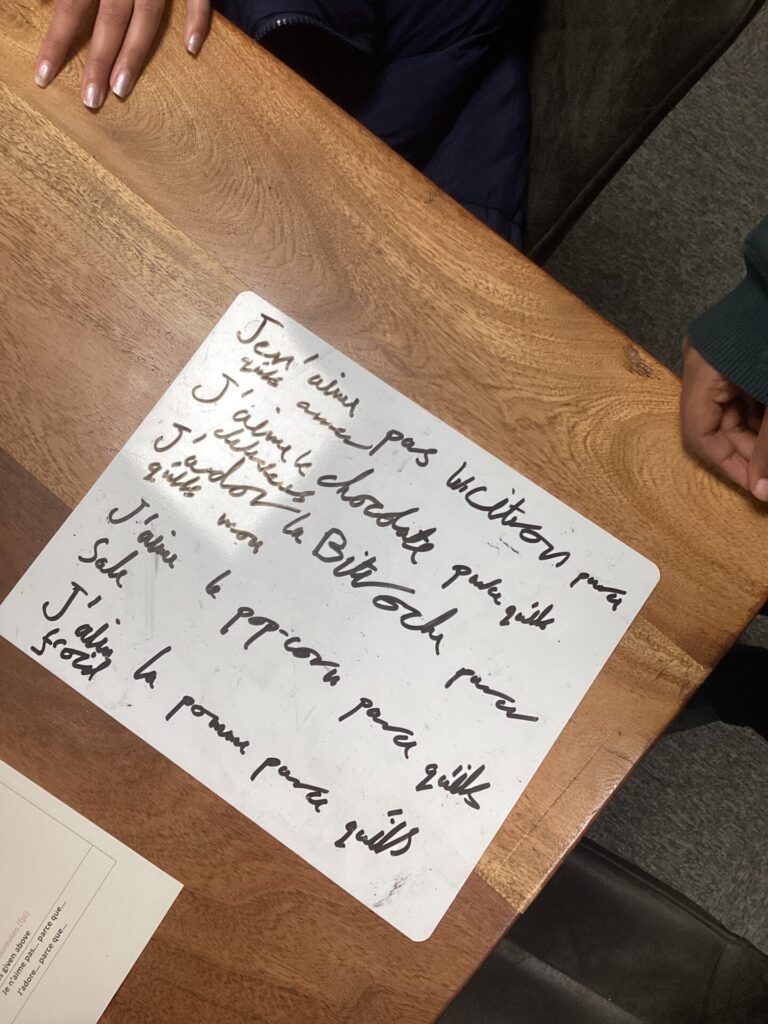 Je n'aime pas le citron parce
quils amer
J'aime le chocolate parce quils
delecieus
J'ador la Bitroch parce
quils mou
J'aime le pop-corn parce quiils
Sale
J'aime la pomme parce quills
froid
breuses (fpl)
s given above
Je n'aime pas... parce que...
J'adore... parce que...